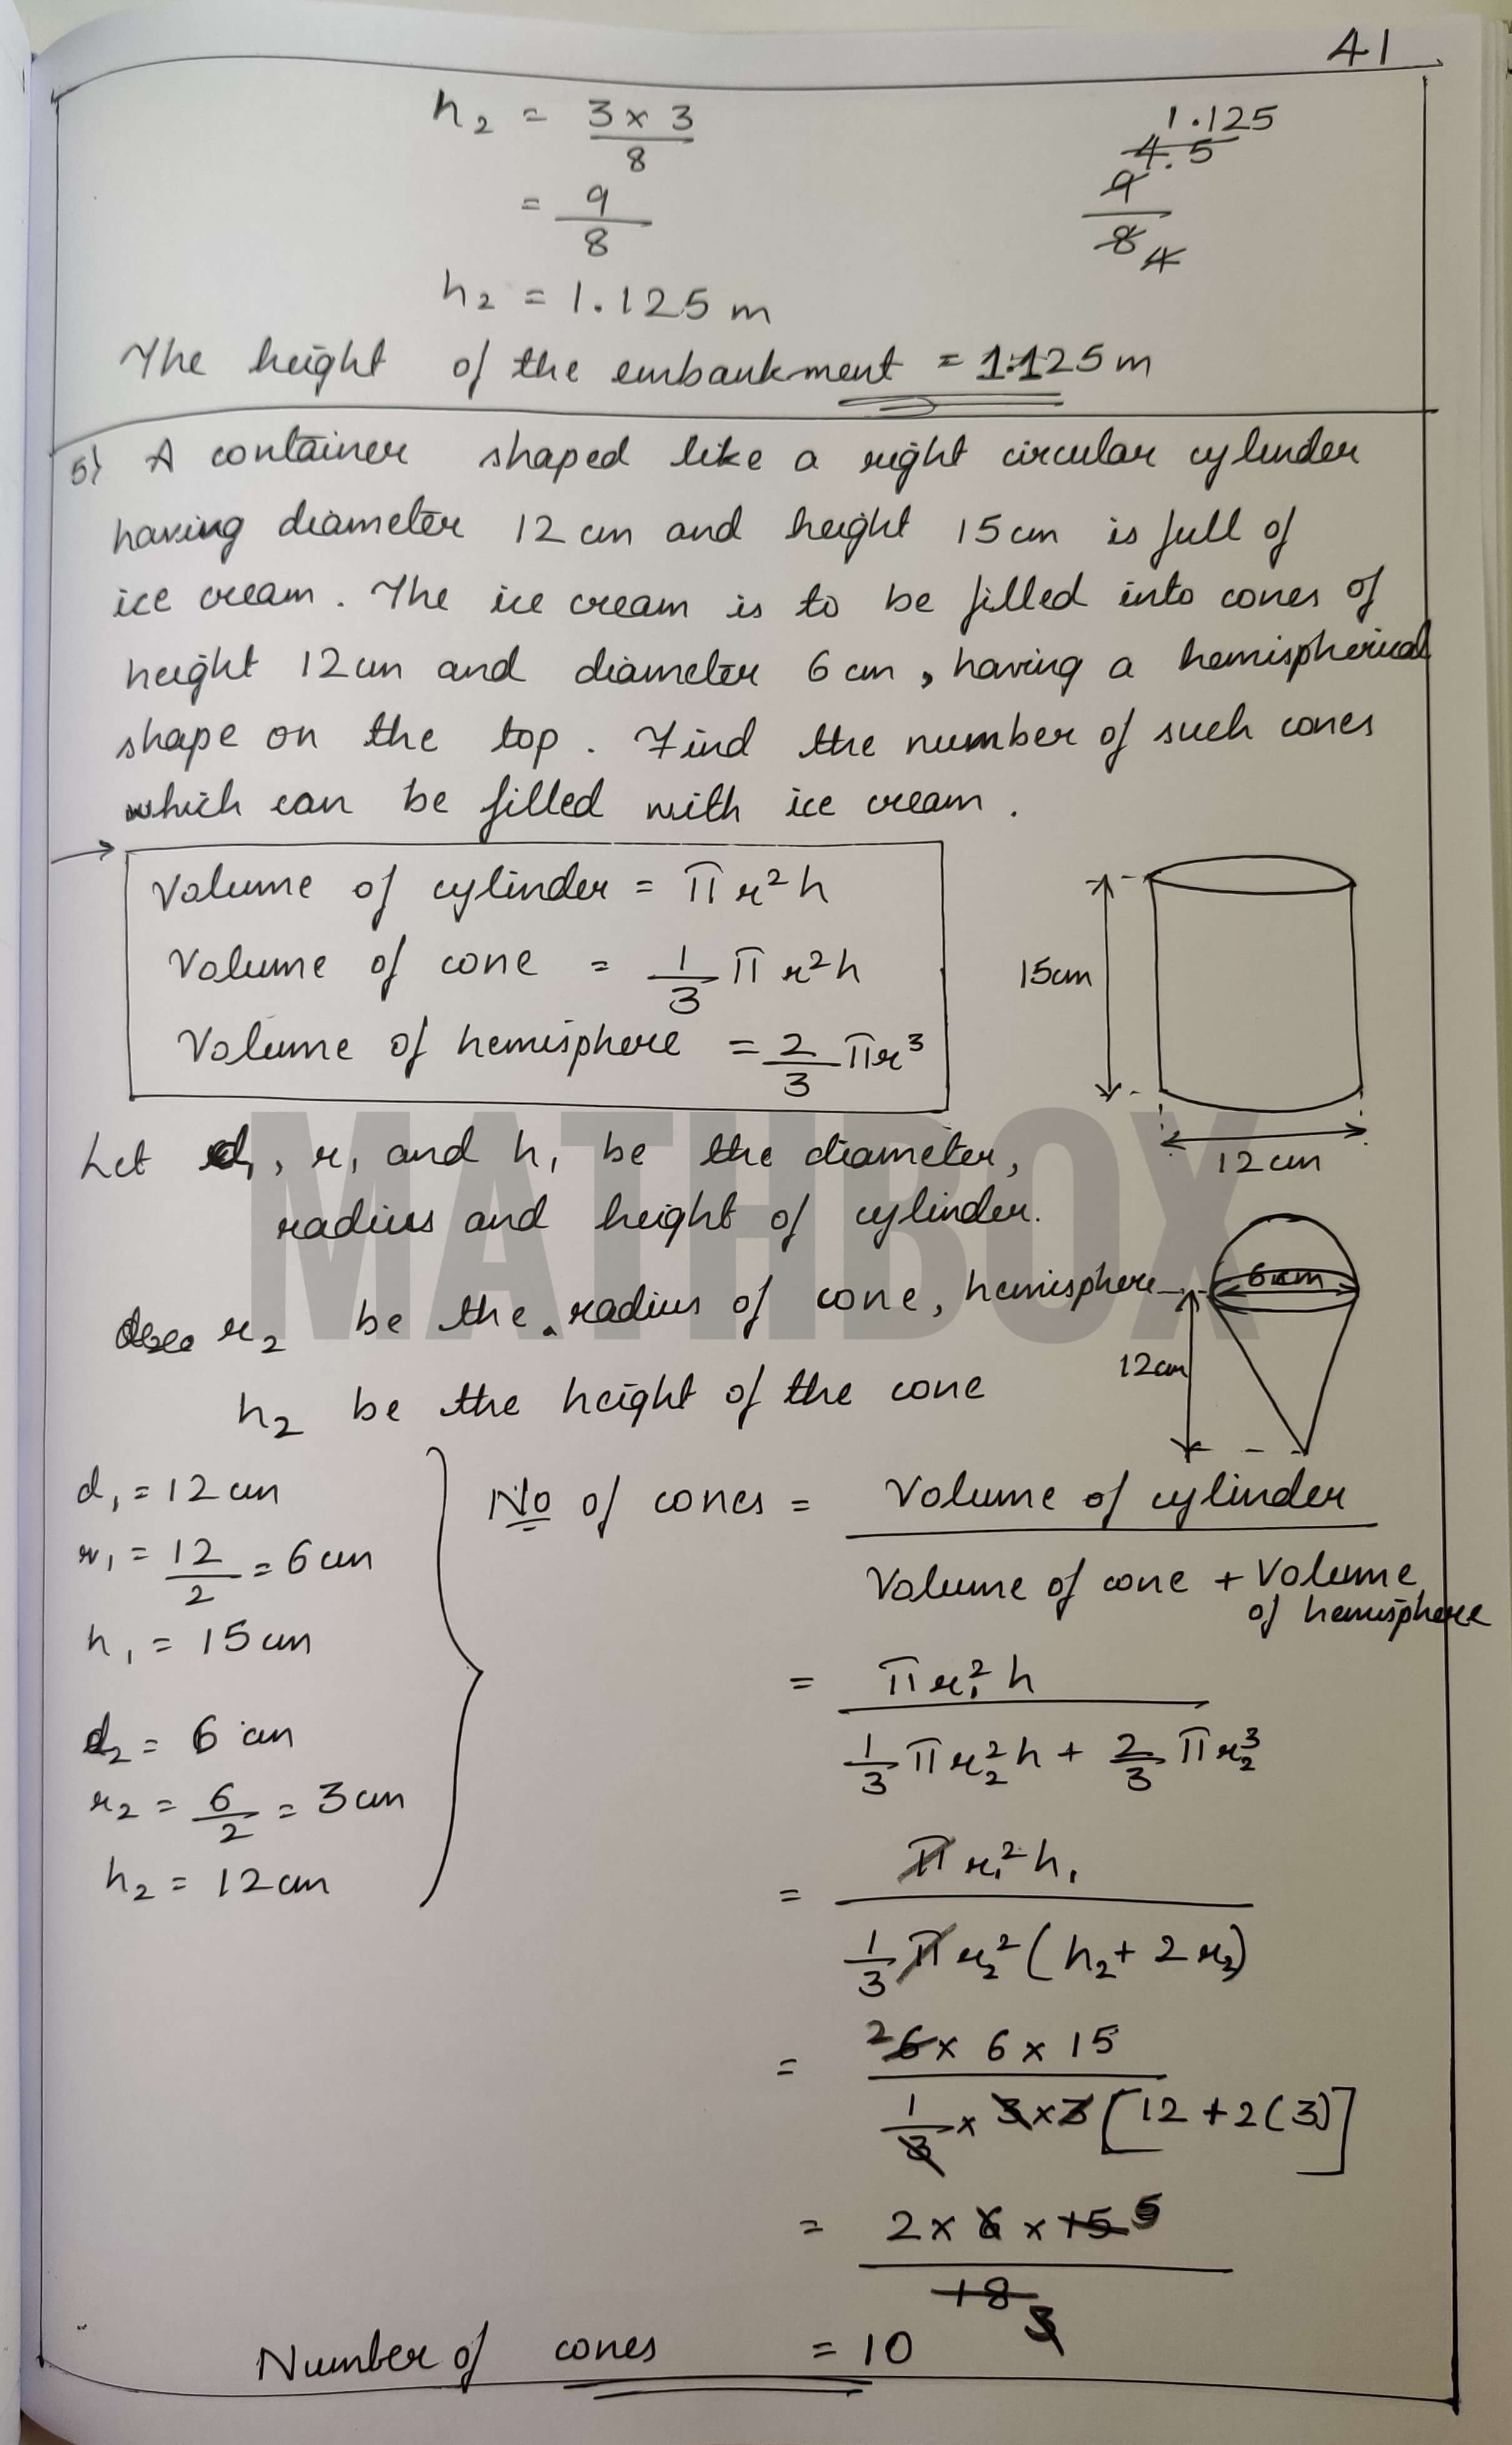 41
h₂ = 3 × 3 / 8
= 9 / 8
1.125
4.5
9 / 8 4
h₂ = 1.125 m
The height of the embankment = 1.125 m
5) A container shaped like a right circular cylinder
having diameter 12 cm and height 15 cm is full of
ice cream. The ice cream is to be filled into cones of
height 12 cm and diameter 6 cm, having a hemispherical
shape on the top. Find the number of such cones
which can be filled with ice cream.
→ Volume of cylinder = π r² h
Volume of cone = 1/3 π r² h
Volume of hemisphere = 2/3 π r³
15cm
12 cm
MATHBOX
Let d₁, r₁ and h₁ be the diameter,
radius and height of cylinder.
r₂ be the radius of cone, hemisphere
h₂ be the height of the cone
6 cm
12cm
d₁ = 12 cm
r₁ = 12/2 = 6 cm
h₁ = 15 cm
d₂ = 6 cm
r₂ = 6/2 = 3 cm
h₂ = 12 cm
No of cones = Volume of cylinder
Volume of cone + Volume
of hemisphere
= π r₁² h
1/3 π r₂² h + 2/3 π r₂³
= π r₁² h₁
1/3 π r₂² (h₂ + 2 r₂)
= 2 6 × 6 × 15
1/3 × 3 × 3 [12 + 2(3)]
= 2 × 6 × 15 5
18 3
Number of cones = 10